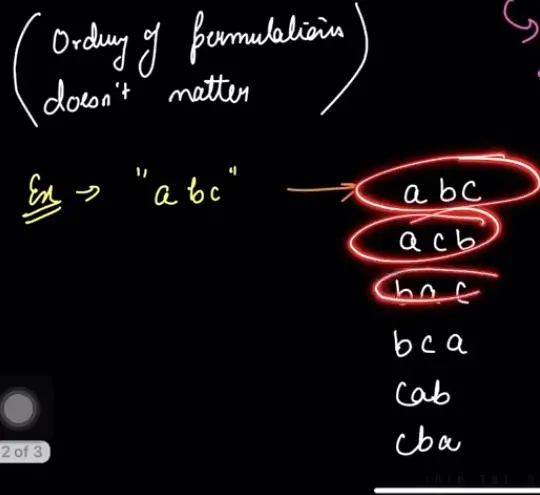 (Ordering of permutations
doesn't matter)
Ex → "abc" → abc
acb
bac
bca
cab
cba
2 of 3